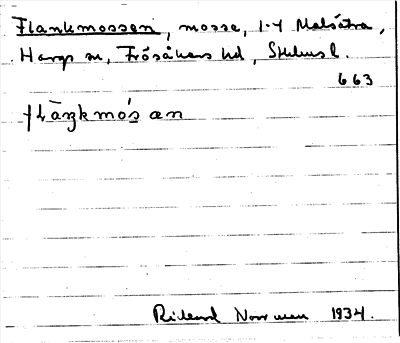 Flankmossen, mosse, 1-4 Malsätra,
Hargs sn, Frösåkers hd, Sthlms l.
663
flaŋkmòs æn
Rickard Norrman 1934.